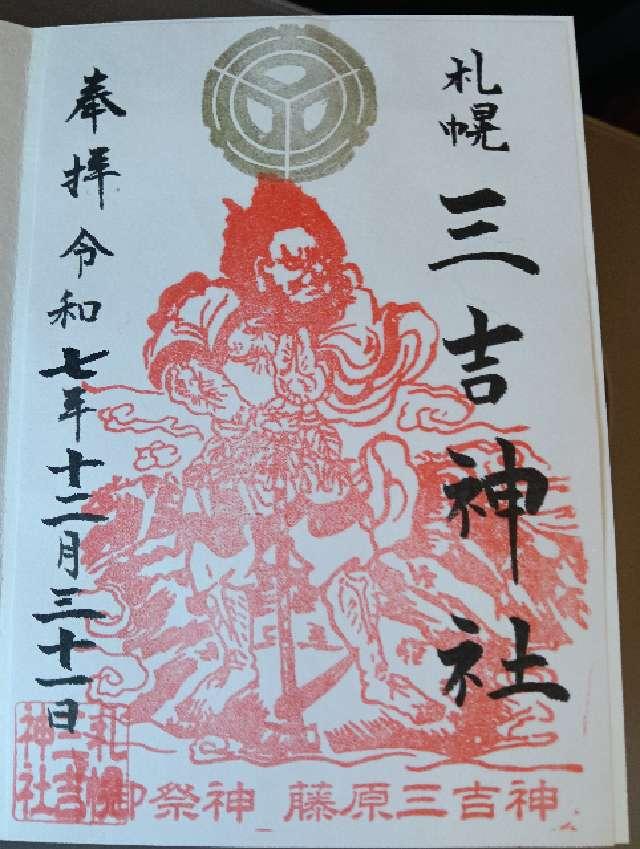 札幌
三吉神社
奉拝 令和七年十二月三十一日
札幌
三吉
神社
御祭神 藤原三吉神